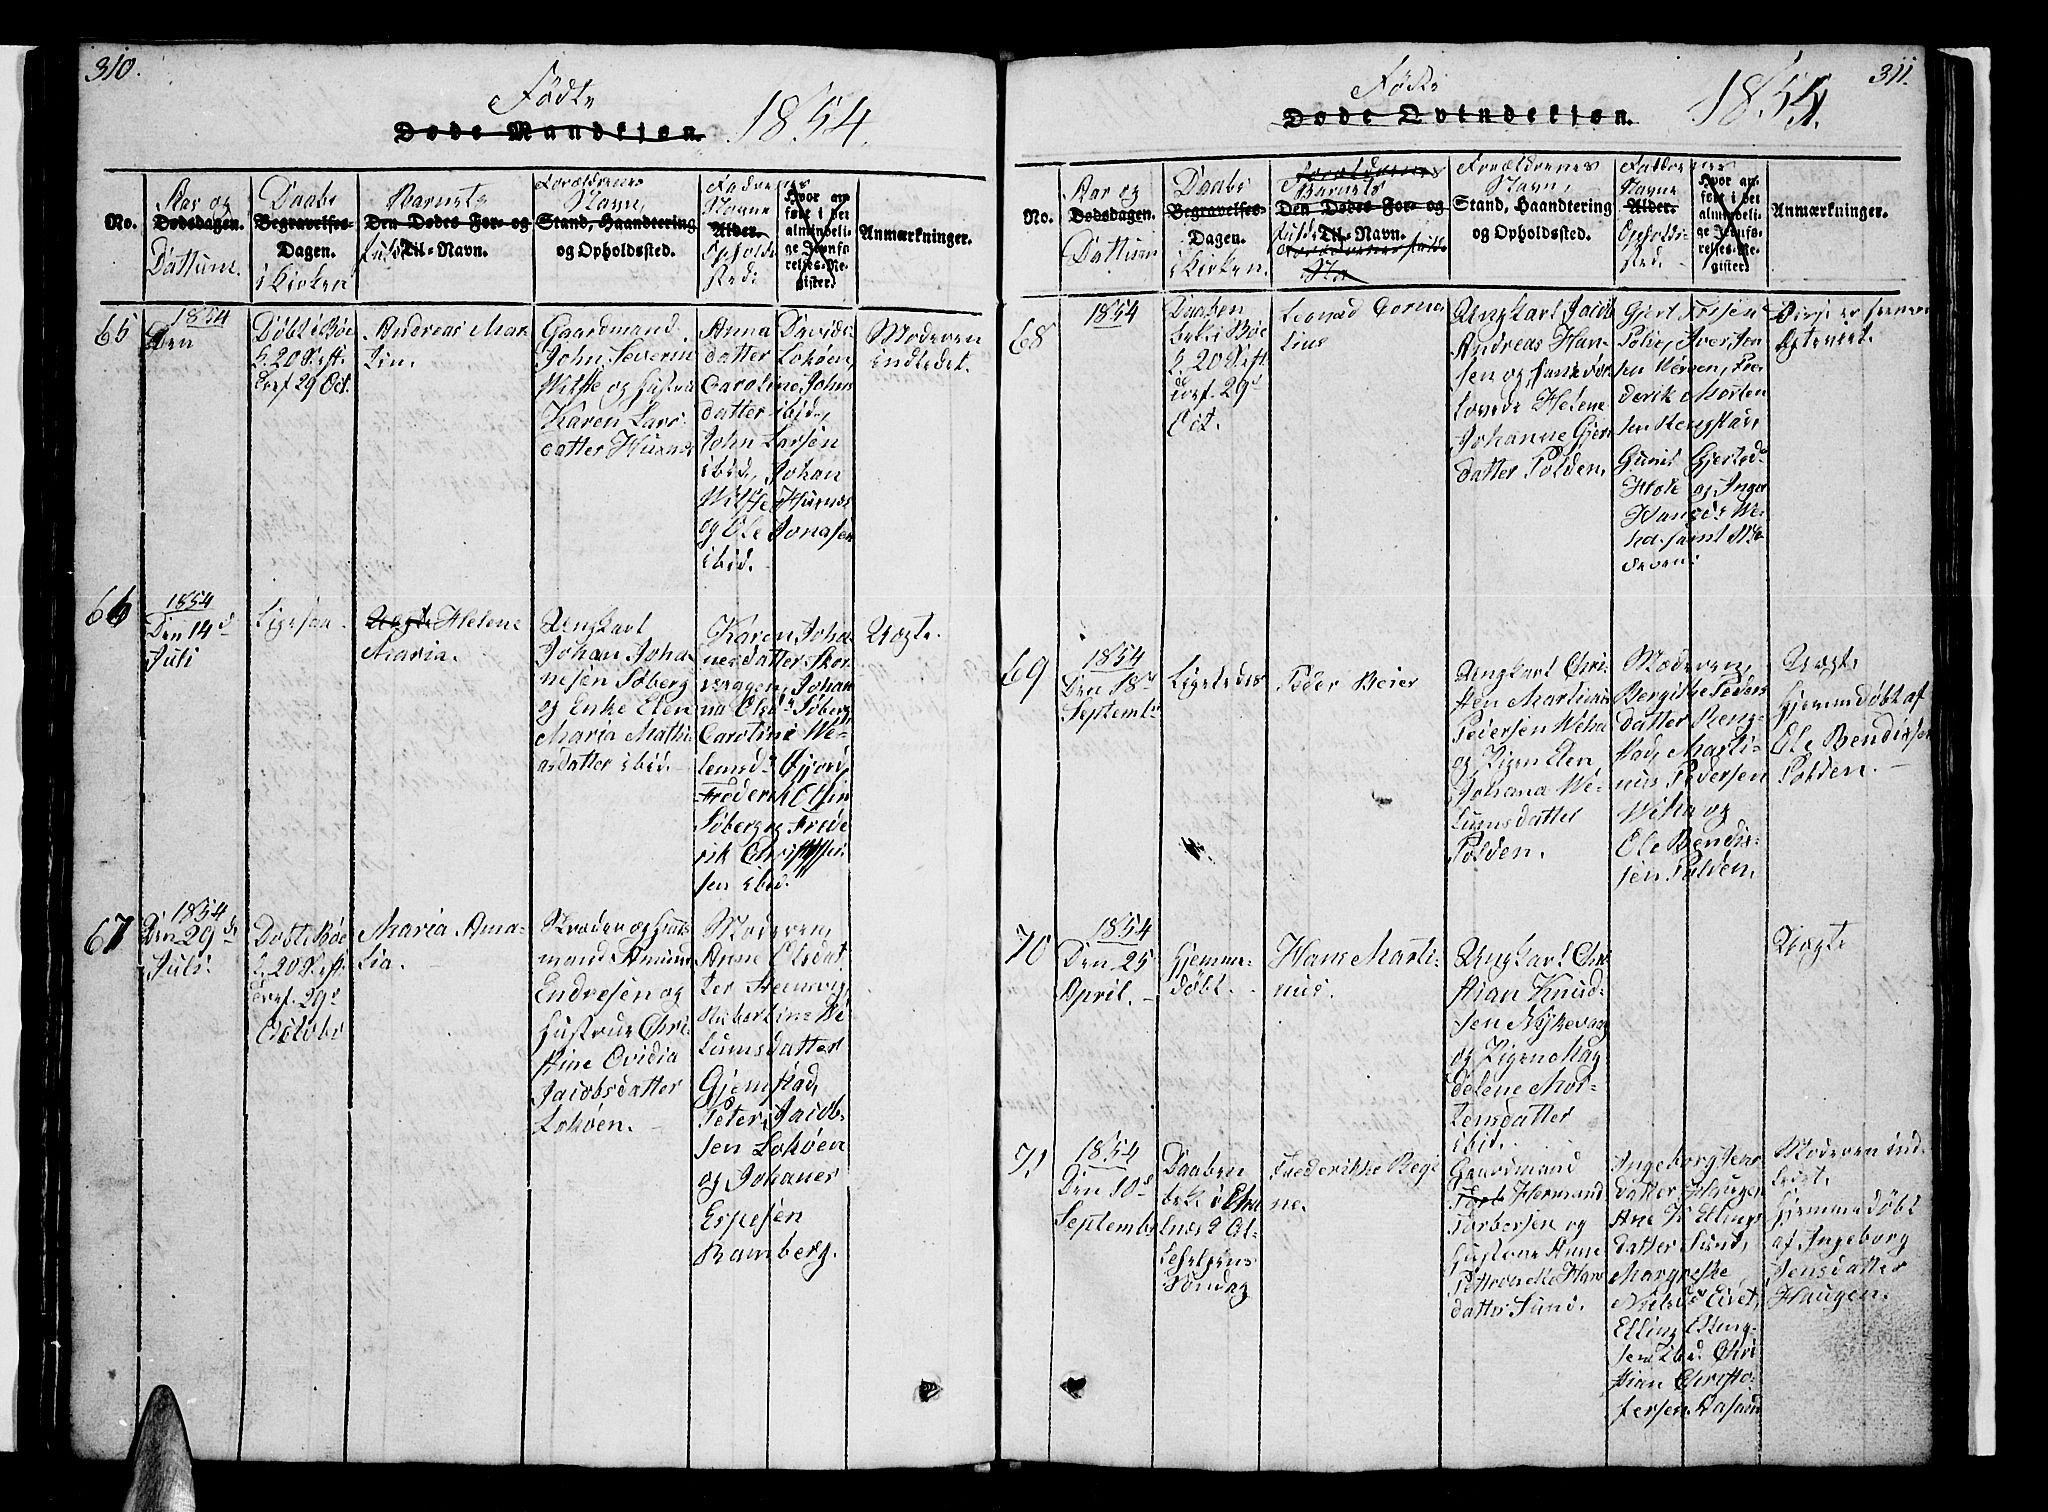 310.
Fødte
Døde Mandkjøn. 1854.
No.
Aar og
Dødsdagen.
Dattum.
Daabs
Begravelses-
Dagen.
i Kirken
Barnets
Den Dødes For- og
fulde Til-Navn.
Forældrenes
Navn,
Stand, Haandtering
og Opholdssted.
Fadrenes
Navne
Alder.
Opholds
sted.
Hvor an-
ført i det
almindeli-
ge Jevnfø-
relses-Re-
gister.
Anmærkninger.
65
1854
Den
Døbt i Bøe
S. 20 Søst.
Tref. 29 Oct.
Andreas Mar-
tin.
Gaardmand
John Severin
Witsøe og Hustrue
Karen Lars
datter Husnes
Anna Davids-
datter Lokøen,
Caroline Johns
datter ibid,
John Larsen
ibid, Johan
Witsøe Husnes
og Ole Jonasen
ibid.
Moderen
Indledet.
66
1854
Den 14d
Juli
Ligesaa.
Uegte Helene
Maria.
Ungkarl
Johan Joha-
nesen Soberg
og Enke Elen
Maria Mathi-
asdatter ibid.
Karen Joha-
nesdatter Skor-
vaagen, Johan-
na Olsdr Soberg
Caroline We-
lemsdr Gjord,
Frederik Olsen
Soberg og Frede-
rik Christen-
sen ibid.
Uægte.
67
1854
Den 29de
Juli.
Døbt i Bøe
S. 20 Søst.
Tref. 29d
October
Maria Ama-
lia.
Skræder og Huus-
mand Amund
Endresen og
Hustrue Chri-
stine Ovidia
Jacobsdatter
Lokøen.
Moderen,
Anne Elsdat-
ter Steenvig
Nubertine We-
lumsdatter
Gjemstad,
Peter Jacob-
sen Lokøen
og Johanes
Espesen
Ramberg.
311.
Fødte
Døde Qvindekjøn. 1854.
No.
Aar og
Dødsdagen.
Dattum
Daabs
Begravelses-
Dagen.
i Kirken.
Forældrenes
Barnets
Den Dødes For- og
fulde Til-Navn.
Forældrenes fulde
Na
Forældrenes
Navn,
Stand, Haandtering
og Opholdssted.
Faddrenes
Navne
Alder.
Opholds-
sted.
Hvor an-
ført i det
almindeli-
ge Jevnfø-
relses-Re-
gister.
Anmærkninger.
68
1854
Daaben
bek. i Bøe
S. 20 Søst
Tref. 29d
Oct.
Leonard Corne-
lius
Ungkarl Jacob
Andreas Han-
sen og
Helene
Johanne Gjerts
datter Polden.
Gjert Ersen
Polde, Iver Jen-
sen Werven, Fre-
derik Morten
sen Rengstad,
Gunil Gjertsdr
Hole og Inger
Hansdr We-
ha samt Mo-
deren.
69
1854
Den 18de
Septembr
Ligeledes
Peder Beier
Ungkarl Chri-
sten Martinus
Pedersen Weha
og Pigen Elen
Johana We-
lumsdatter
Polden.
Moderen,
Bergitte Peders
datter Reng-
stad, Marti-
nus Pedersen
Weha og
Ole Bendix-
sen Polden.
Uægte
Hjemmedøbt af
Ole Bendixsen
Polden.
70
1854
Den 25
April.
Hjemme-
døbt.
Hans Marti-
nus.
Ungkarl Chri-
stian Knud-
sen Nykevaag
og Pigen Mag-
delene Mor-
tensdatter
ibid.
Uægte
71
1854
Den 10d
Septembr
Daaben
bek. i
Alle Helgens
Søndag
Frederikke Regi-
ne.
Gaardmand
Hermand
Torbersen og
Hustrue Anne
Petternella Hans
datter Sund.
Ingeborg Jens
datter Haugen
Ane K Ellings
datter Sund,
Margrethe
Nielsdr Eidet,
Elling Elling-
sen ibid. Chri-
stian Christo-
fersen
Moderen ind-
ledet.
Hjemmedøbt
af Ingeborg
Jensdatter
Haugen.